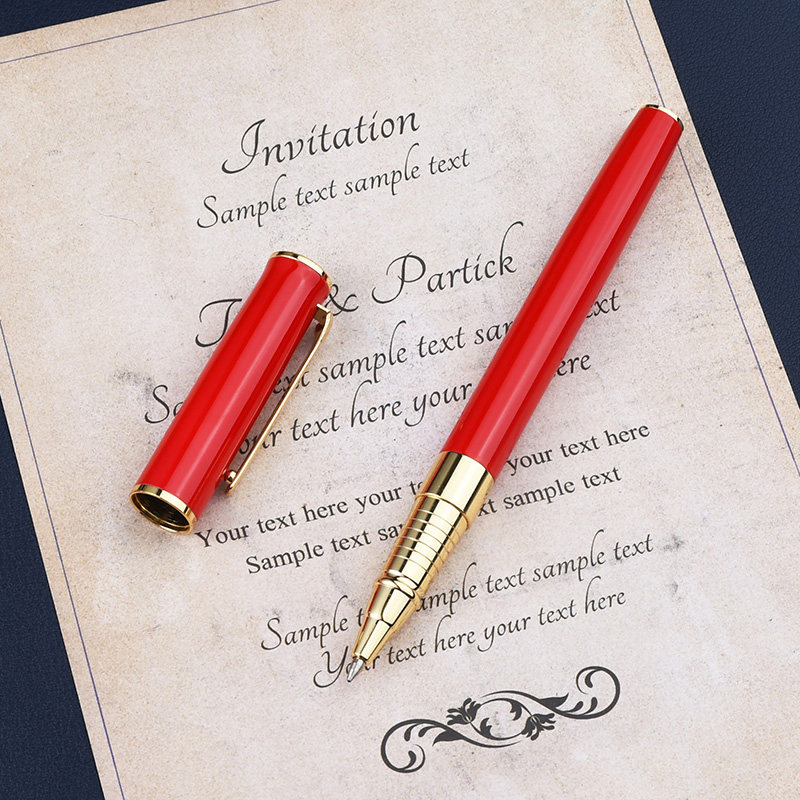 Invitation
Sample text sample text
& Partick
sample text
text here your
Your text here your your text here
Sample text sample text
Sample text sample text
Your text here your text here